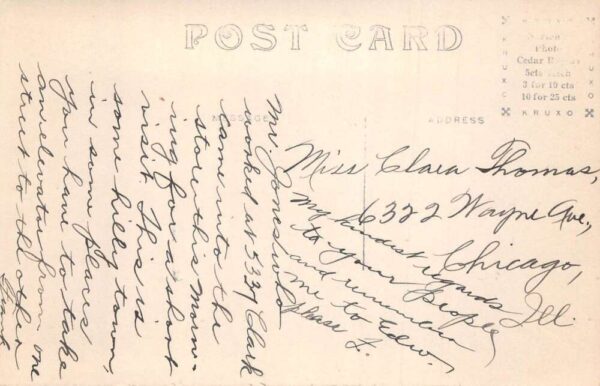 POST CARD
KRUXO
Photo
Cedar Rapids
5cts Each
3 for 10 cts
10 for 25 cts
KRUXO
MESSAGE
ADDRESS
Mr. Jones who
worked at 5337 Clark
came into the
store this morn-
ing for a short
visit This is
some hilly town,
in some places
you have to take
an elevator from one
street to the other
Frank
Miss Clara Thomas,
6322 Wayne Ave.,
Chicago,
Ill.
My kindest regards
to your people
and remember
me to Edw.
please F.